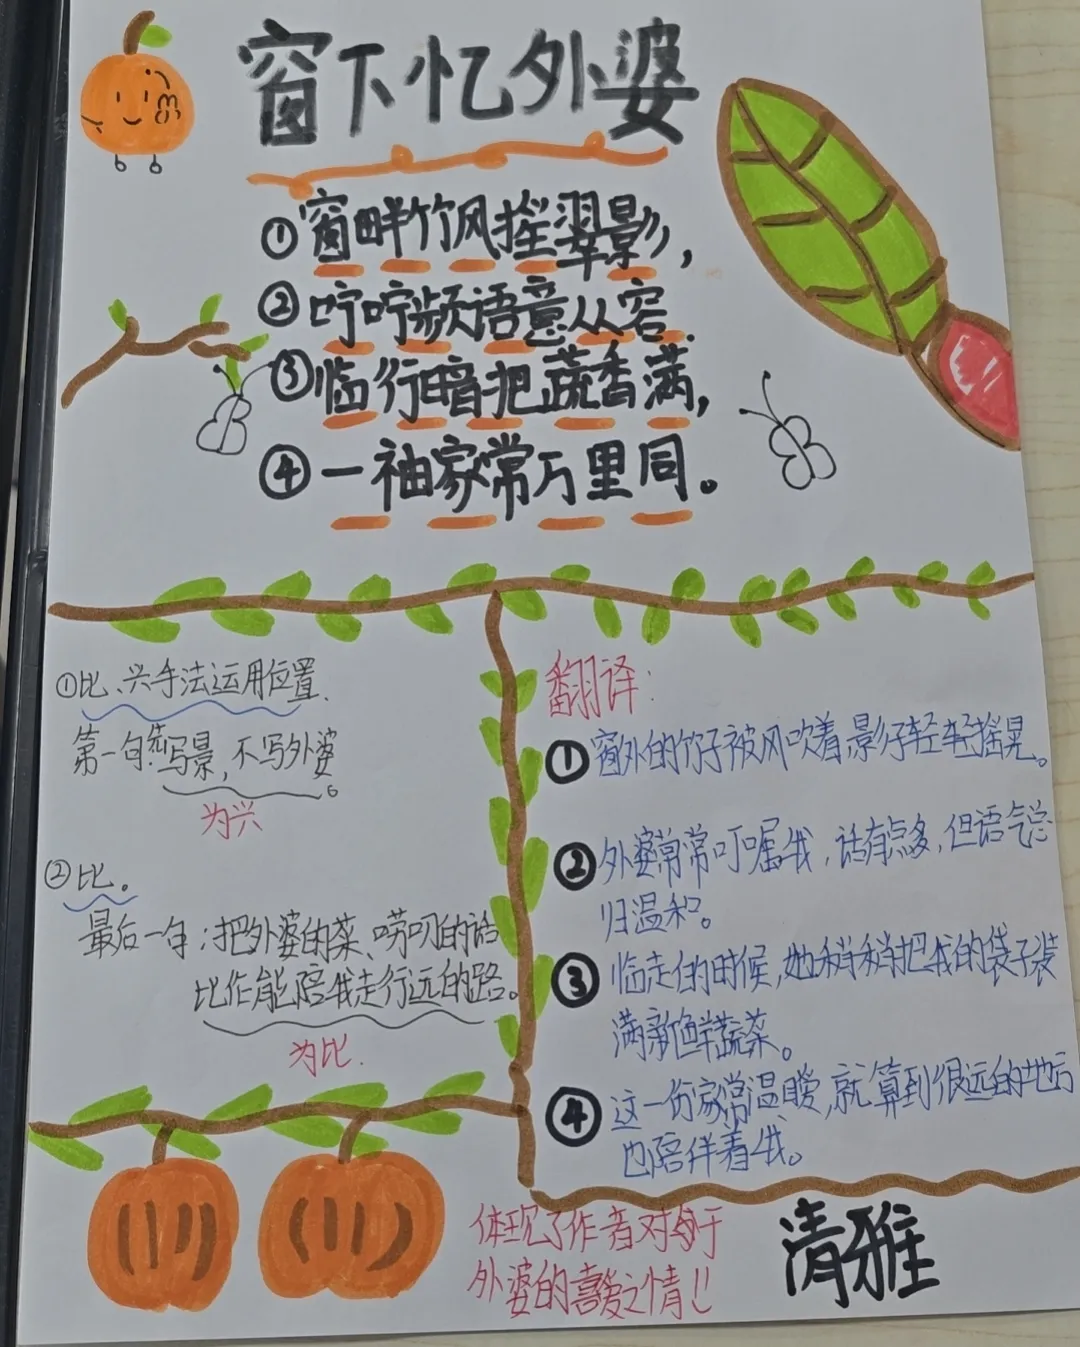 窗下忆外婆
①窗畔竹风摇翠影,
②咛咛频语意从容.
③临行暗把蔬香满,
④一袖家常万里同。
①比、兴手法运用位置.
第一句:先写景,不写外婆。
为兴
②比。
最后一句:把外婆的菜、唠叨的话
比作能陪我走行远的路。
为比.
翻译:
①窗外的竹子被风吹着,影子轻轻摇晃。
②外婆常常叮嘱我,话有点多,但语气总
归温和。
③临走的时候,她稍稍把我的袋子装
满新鲜蔬菜。
④这一份家常温暖,就算到很远的地方
也陪伴着我。
体现了作者对于
外婆的喜爱之情!!
清雅